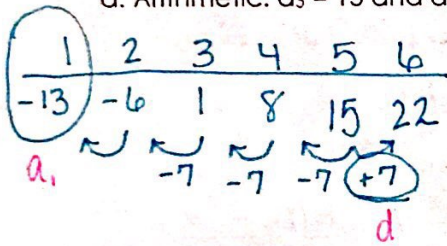 a. Arithmetic: a₅ = 15 and a
1 2 3 4 5 6
-13 -6 1 8 15 22
-7 -7 -7 +7
a₁
d